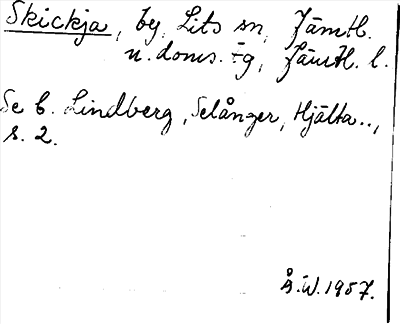 Skickja, by, Lits sn, Jämtl.
n. doms. tg, Jämtl. l.
Se b. Lindberg, Selånger, Hjälta..,
s. 2.
Å.W. 1957.